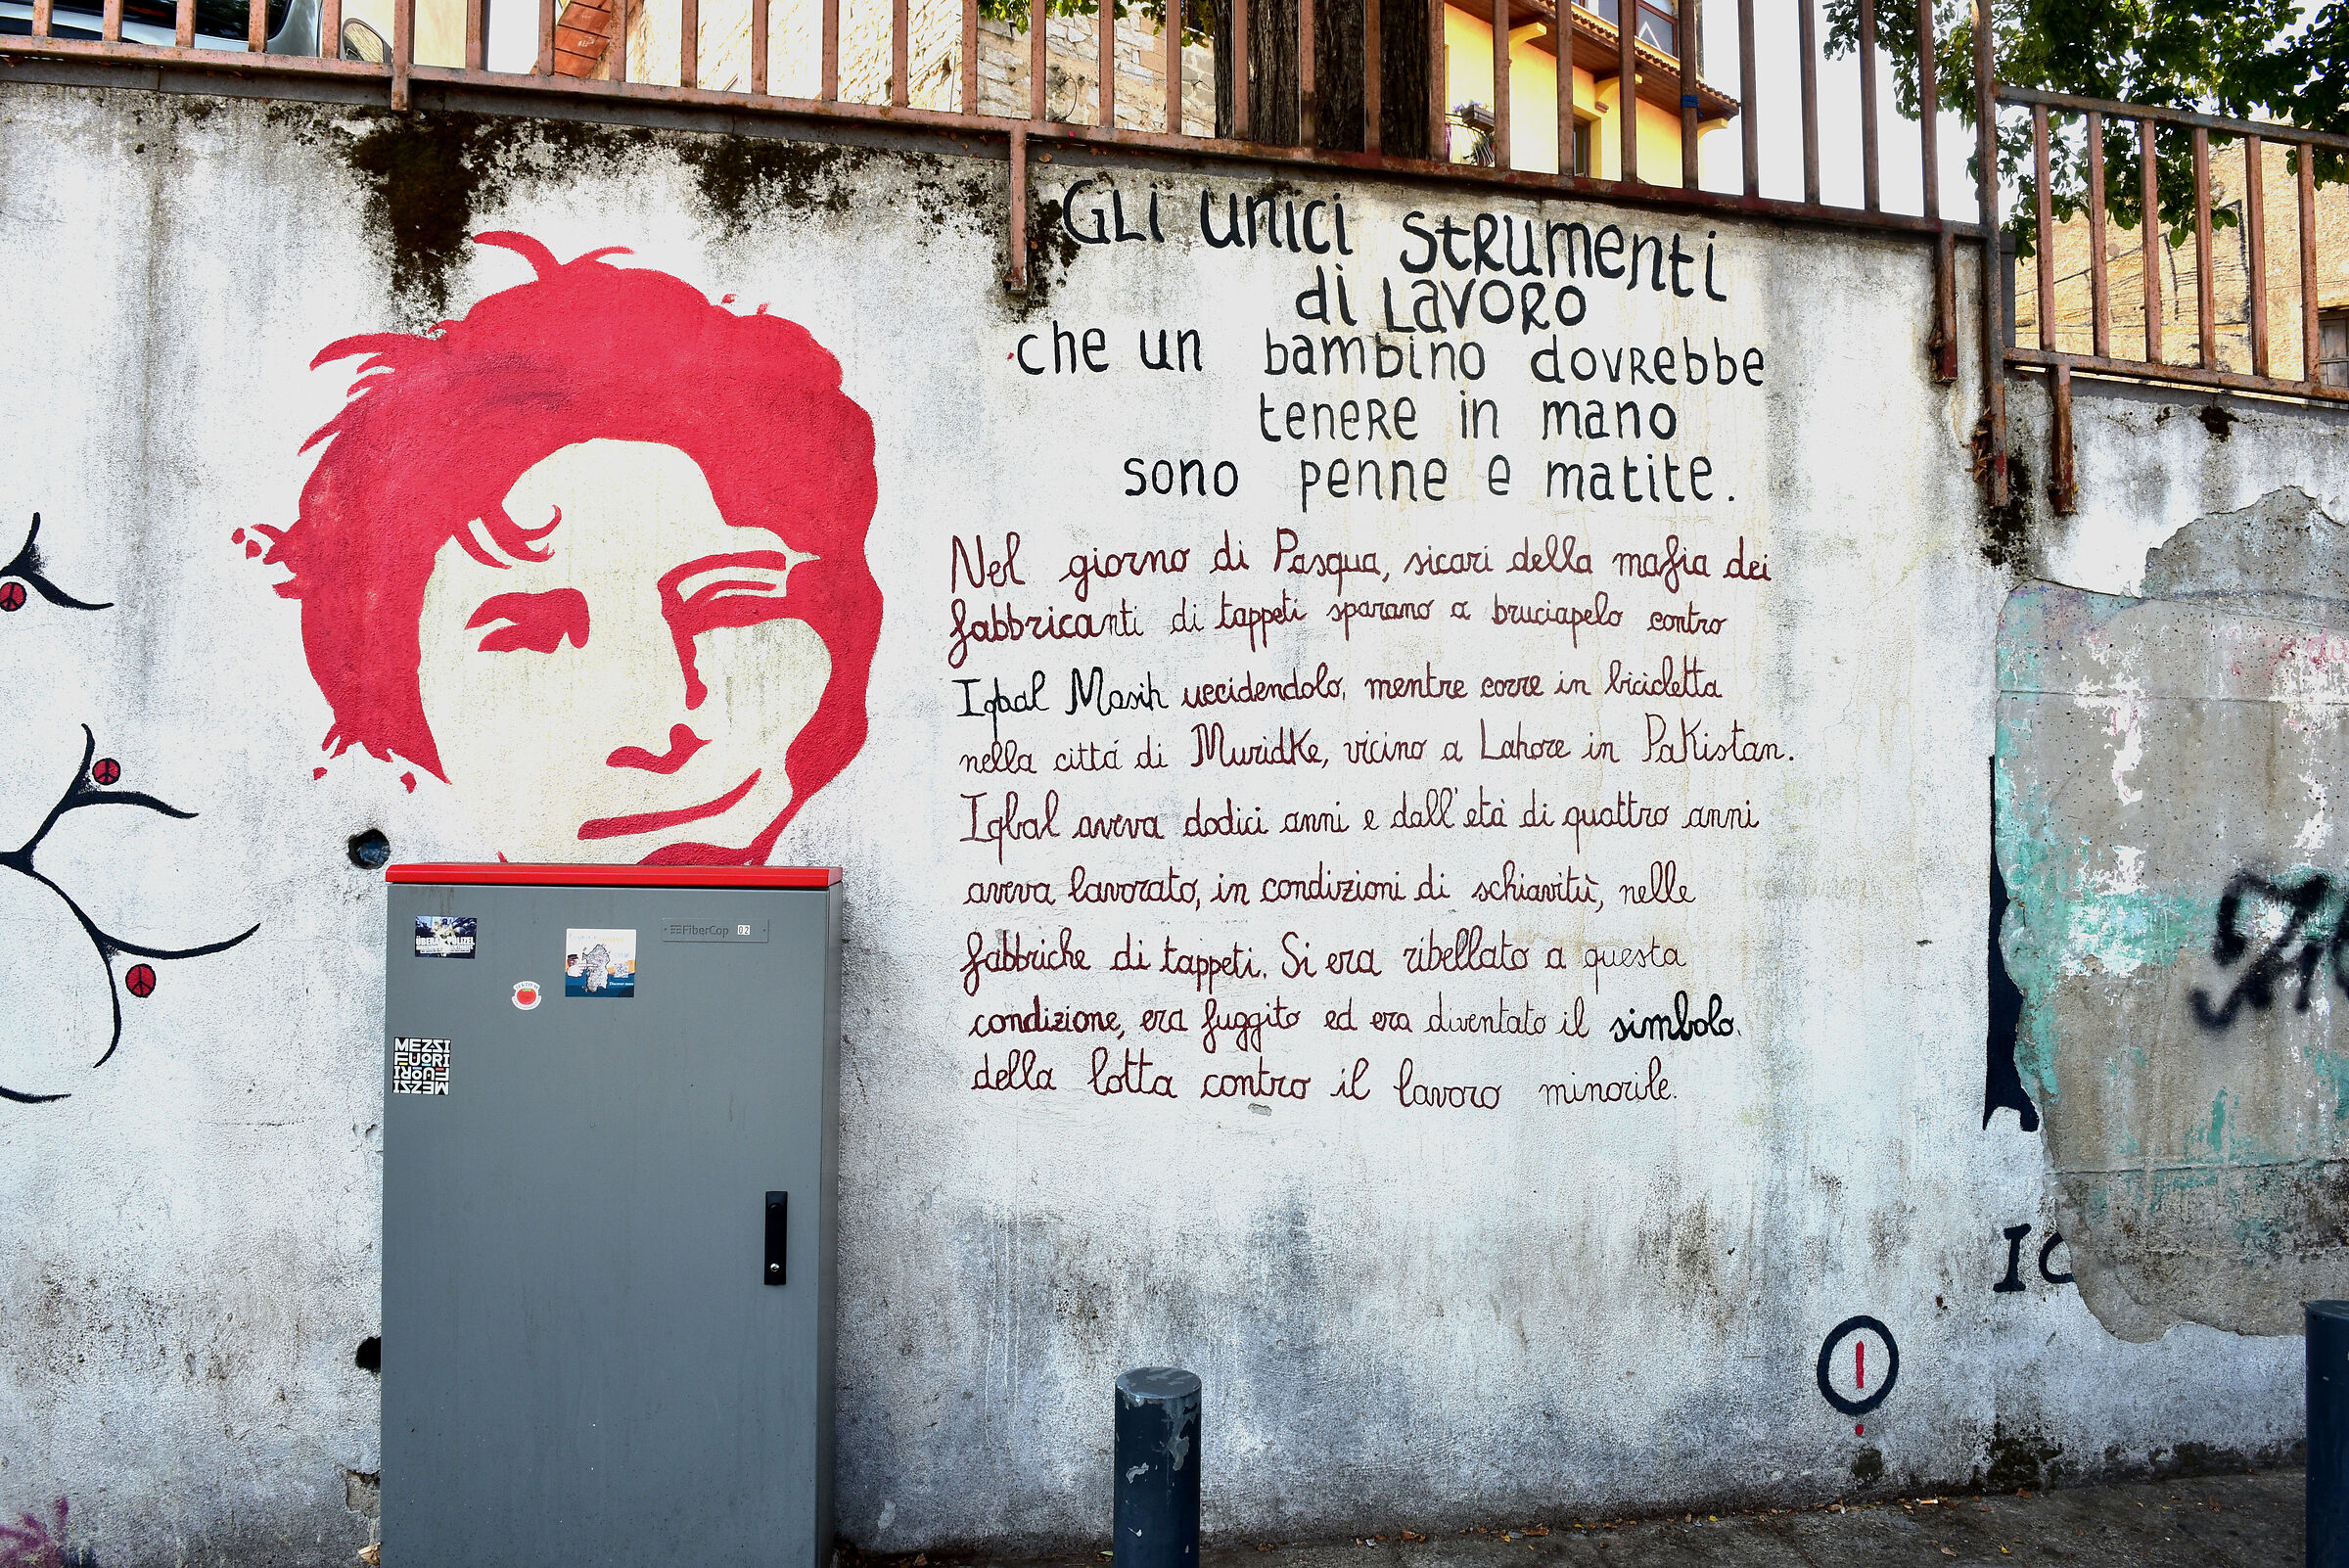 GLi UNiCi StRUMENti
di LAVORO
che un bambino dovrebbe
tenere in mano
sono penne e matite.
Nel giorno di Pasqua, sicari della mafia dei
fabbricanti di tappeti sparano a bruciapelo contro
Iqbal Masih uccidendolo, mentre corre in bicicletta
nella cittá di Muridke, vicino a Lahore in Pakistan.
Iqbal aveva dodici anni e dall'età di quattro anni
aveva lavorato, in condizioni di schiavitù, nelle
fabbriche di tappeti. Si era ribellato a questa
condizione, era fuggito ed era diventato il simbolo
della lotta contro il lavoro minorile.
FiberCop 02
MEZZI
FUORI
FUORI
MEZZI